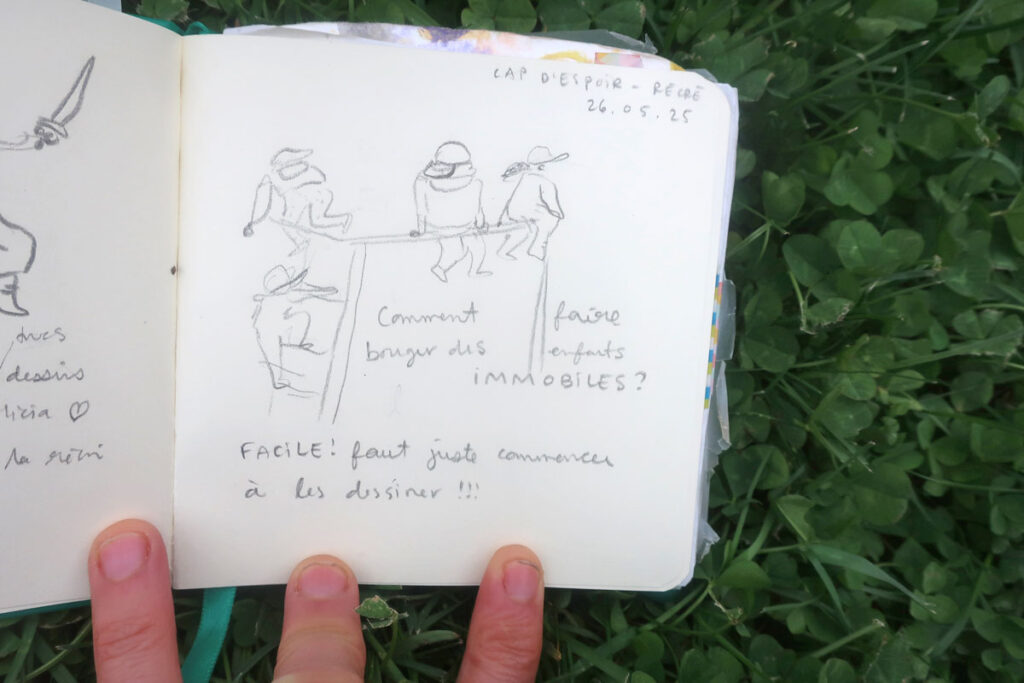 dessins
licia ♡
la récré
CAP D'ESPOIR - RÉCRÉ
26.05.25
Comment faire
bouger des enfants
IMMOBILES?
FACILE! faut juste commencer
à les dessiner !!!